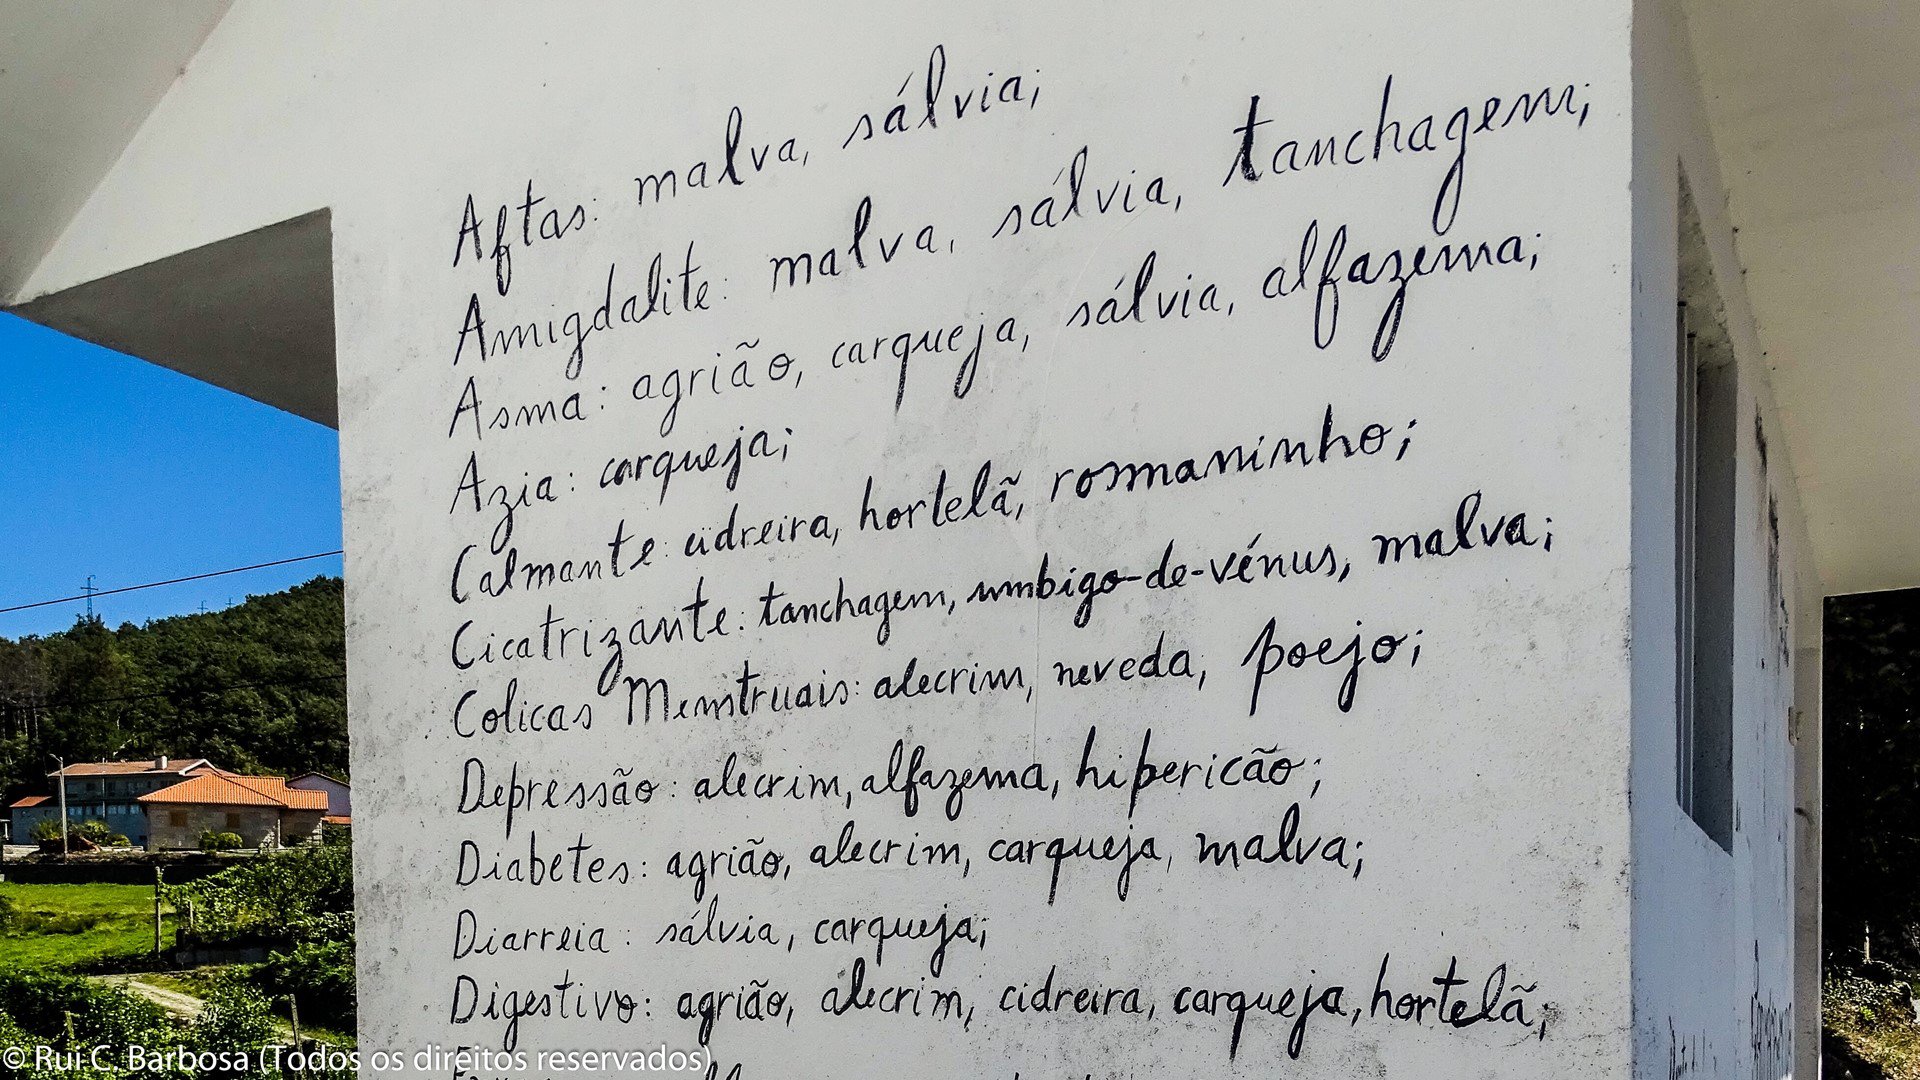 Aftas: malva, sálvia;
Amigdalite: malva, sálvia, tanchagem;
Asma: agrião, carqueja, sálvia, alfazema;
Azia: carqueja;
Calmante: cidreira, hortelã, rosmaninho;
Cicatrizante: tanchagem, umbigo-de-vénus, malva;
Colicas Menstruais: alecrim, neveda, poejo;
Depressão: alecrim, alfazema, hipericão;
Diabetes: agrião, alecrim, carqueja, malva;
Diarreia: sálvia, carqueja;
Digestivo: agrião, alecrim, cidreira, carqueja, hortelã;
© Rui C. Barbosa (Todos os direitos reservados)